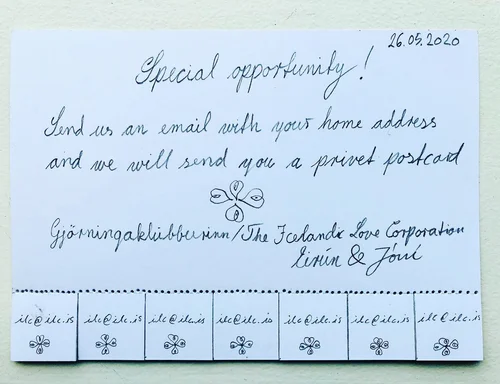 26.05.2020
Special opportunity!
Send us an email with your home address
and we will send you a privet postcard
Gjörningaklúbburinn/The Icelandx Love Corporation
Eirún & Jóní
ilc@ilc.is ilc@ilc.is ilc@ilc.is ilc@ilc.is ilc@ilc.is ilc@ilc.is ilc@ilc.is